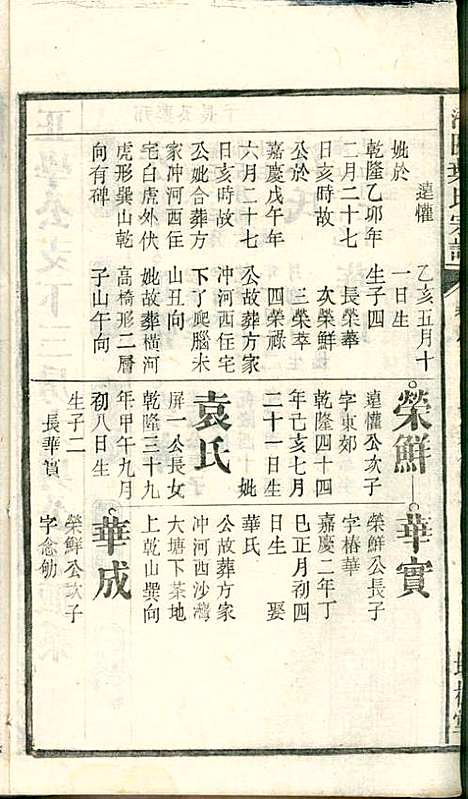 氏宗譜
遠懽
妣於
乾隆乙卯年
二月二十七
日亥時故
公於
嘉慶戊午年
六月二十七
日亥時故
公妣合葬方
家冲河西住
宅白虎外伏
虎形巽山乾
向有碑
乙亥五月十
一日生
生子四
長榮華
次榮鮮
三榮
四榮祿
公故葬方家
冲河西住宅
下了爬腦未
山丑向
妣故葬橫河
高橋形二層
子山午向
榮鮮
遠懽公次子
字東郊
乾隆四十四
年己亥七月
二十一日生
妣
袁氏
屏一公長女
乾隆三十九
年甲午九月
初八日生
生子二
長華實
華實
榮鮮公長子
字椿華
嘉慶二年丁
巳正月初四
日生 娶
華氏
公故葬方家
冲河西沙灣
大塘下茶地
上乾山巽向
華成
榮鮮公次子
字念劬